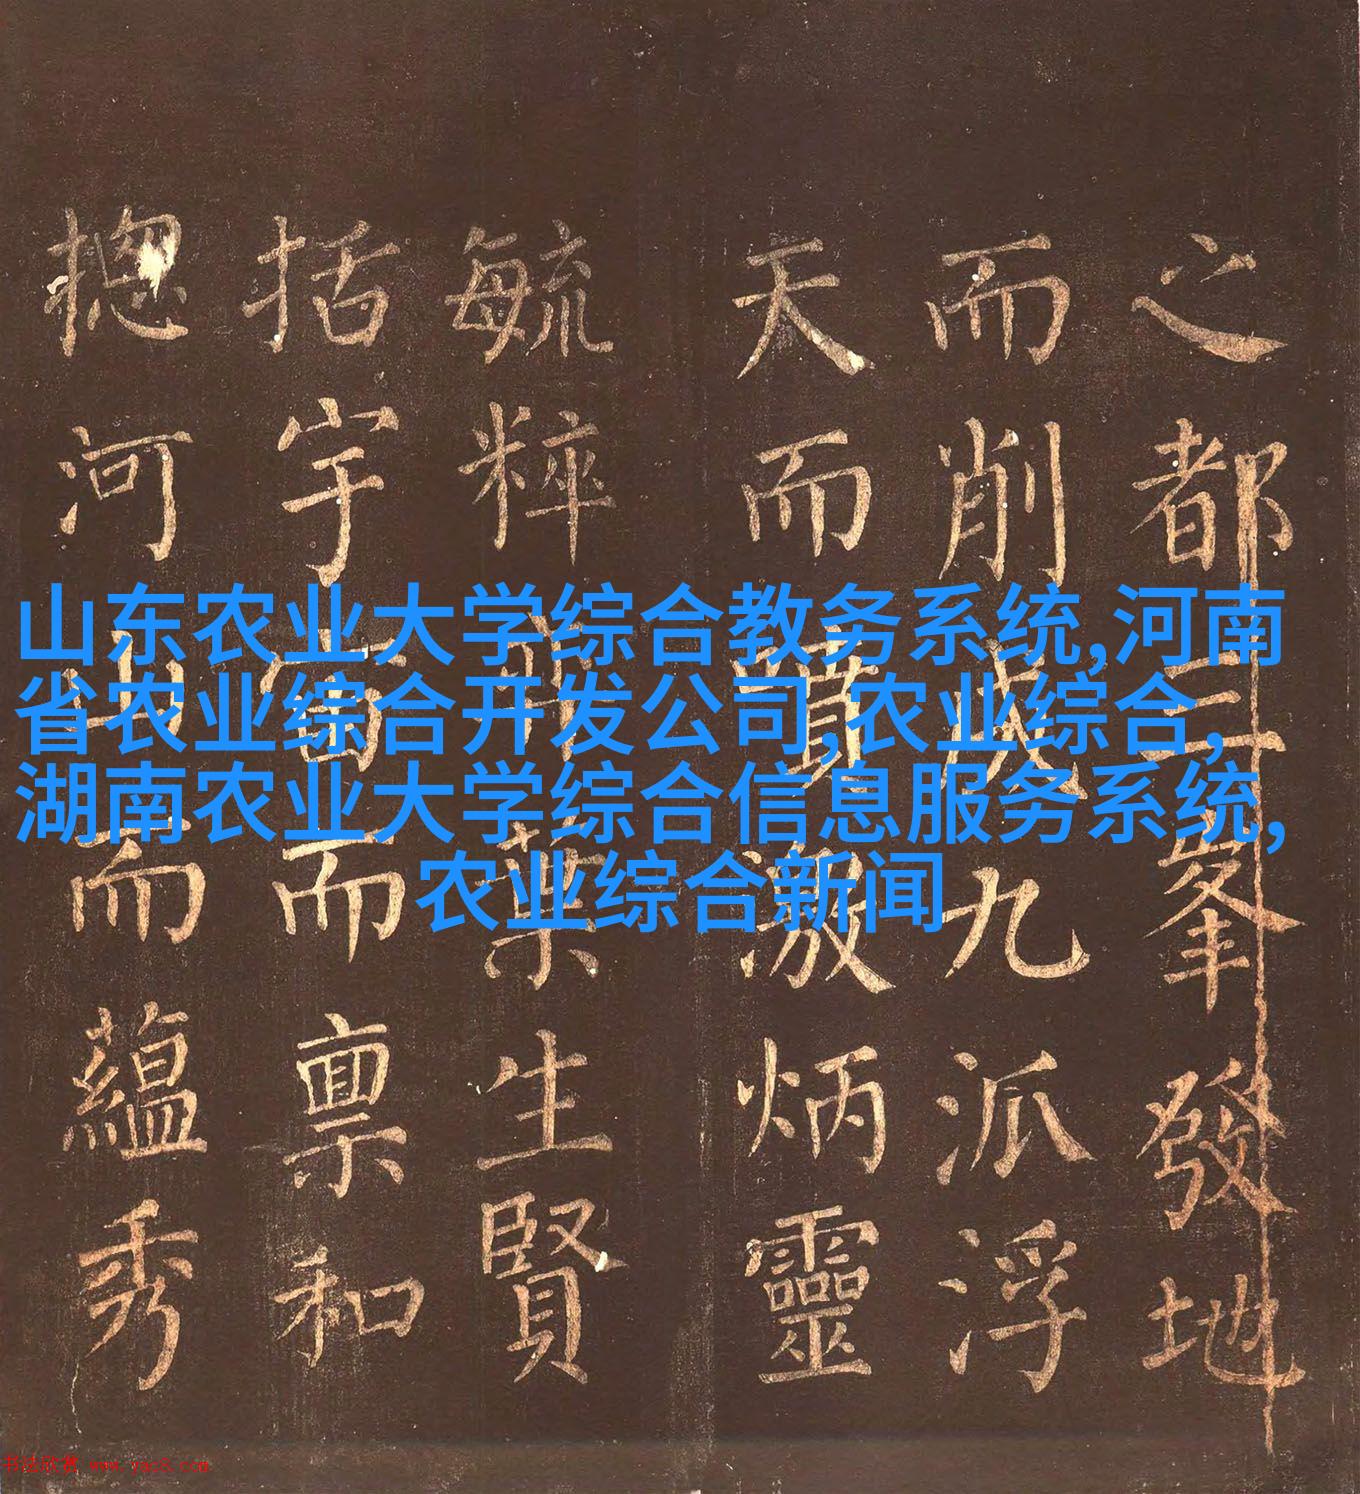 山东农业大学综合教务系统,河南
省农业综合开发公司,农业综合,
湖南农业大学综合信息服务系统,
农业综合新闻
之都三峯發地
而削成九派浮
天而噴激炳靈
毓粹葉生賢
括宇宙而禀和
揔河山而蘊秀
书法欣赏 www.yac8.com